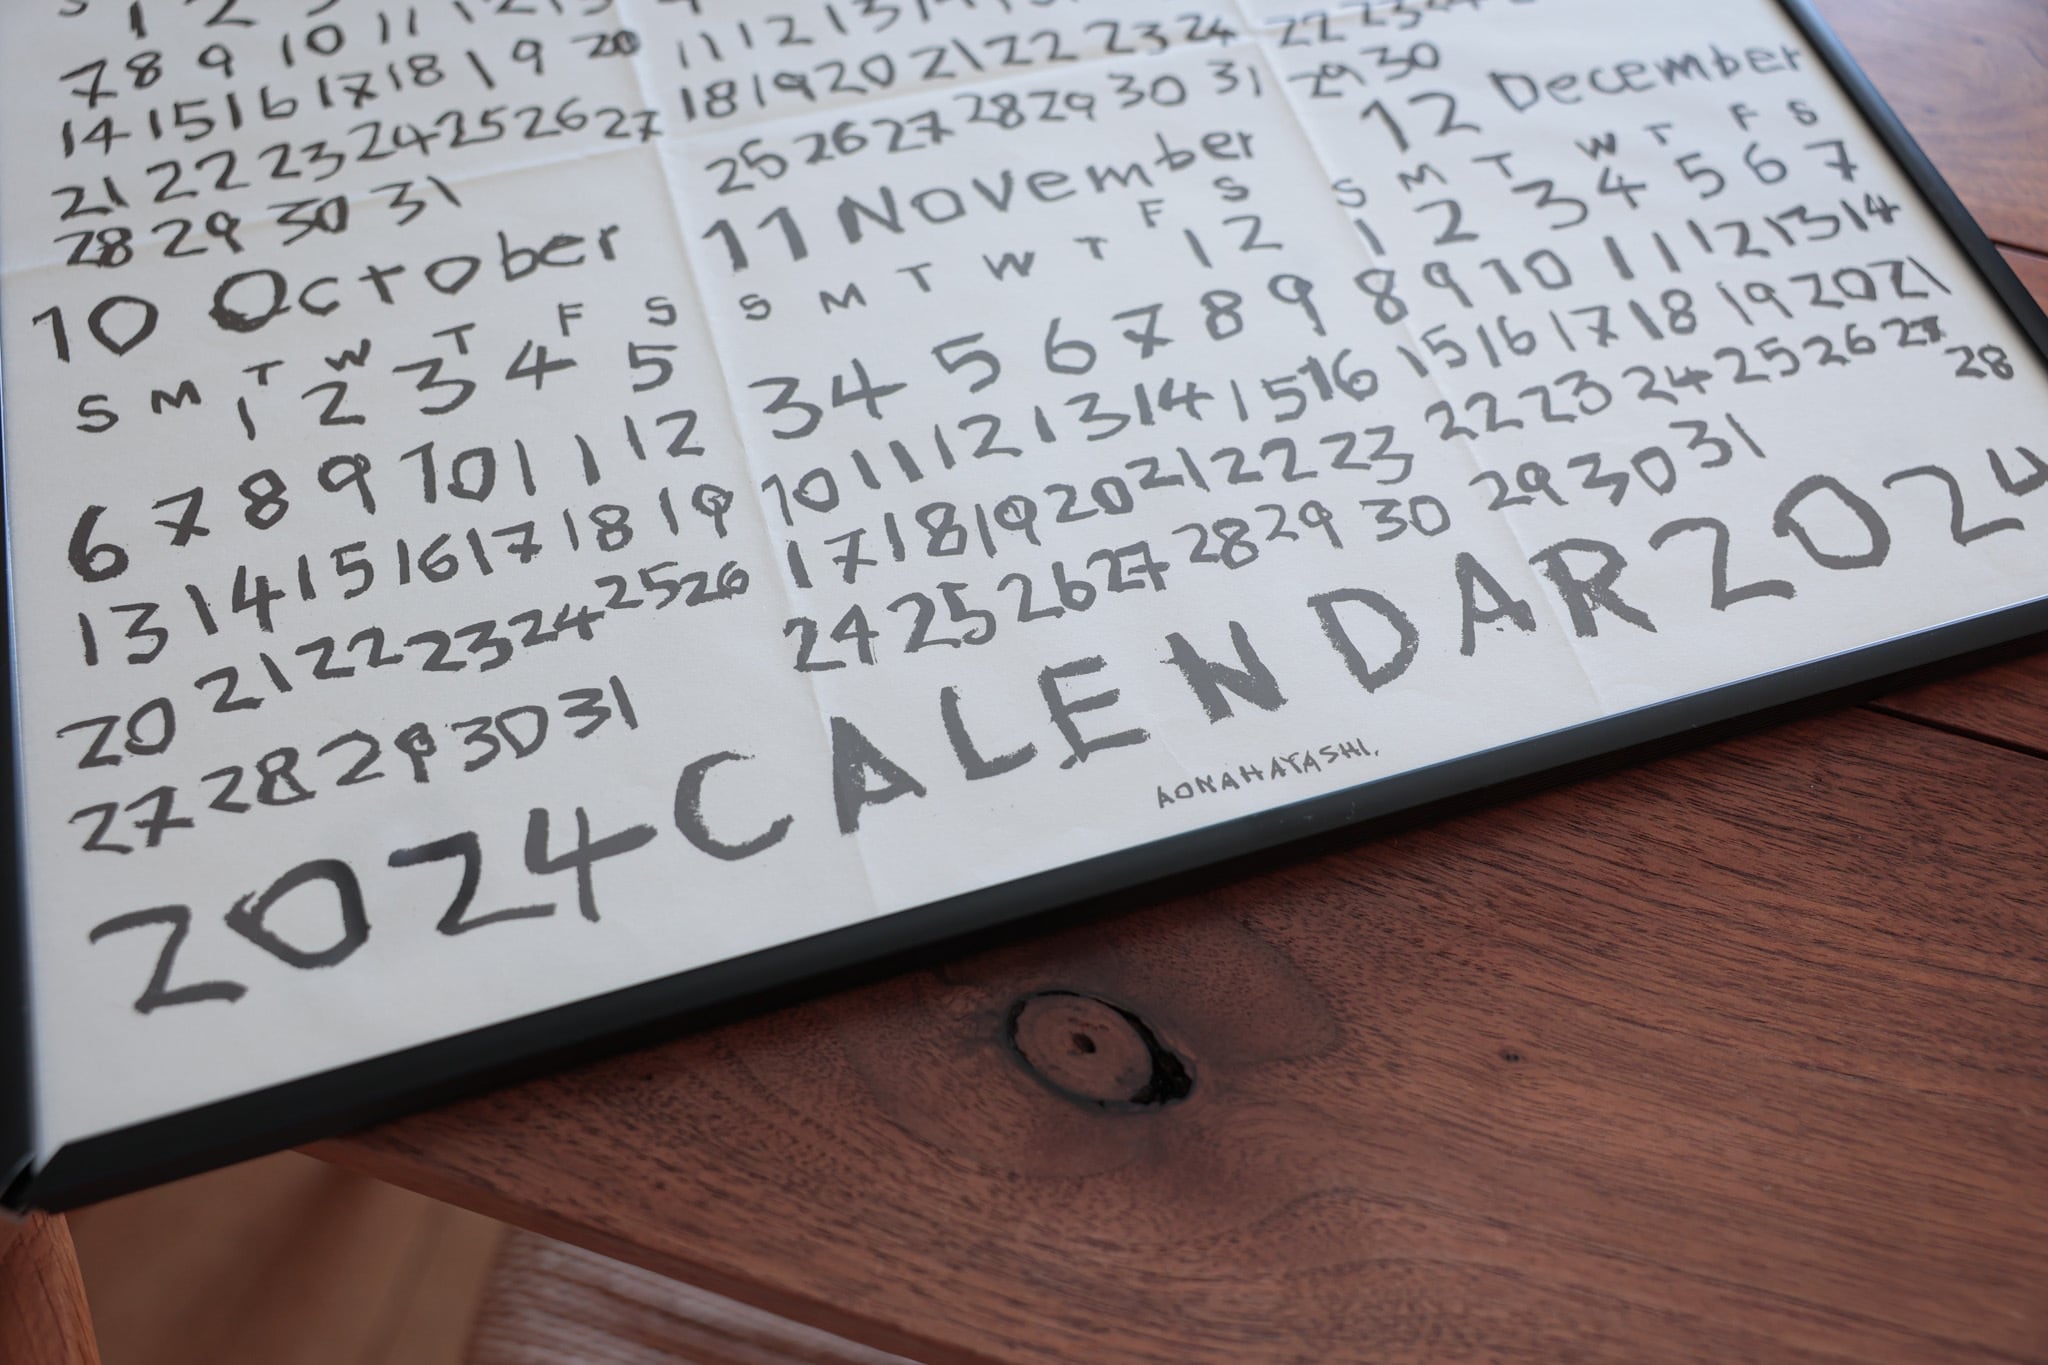 7 8 9 10 11 12 13
14 15 16 17 18 19 20
21 22 23 24 25 26 27
28 29 30 31
11 12 13
18 19 20 21 22 23 24
25 26 27 28 29 30 31
22 23
29 30
10 October
S M T W T F S
1 2 3 4 5
6 7 8 9 10 11 12
13 14 15 16 17 18 19
20 21 22 23 24 25 26
27 28 29 30 31
11 November
S M T W T F S
1 2
3 4 5 6 7 8 9
10 11 12 13 14 15 16
17 18 19 20 21 22 23
24 25 26 27 28 29 30
12 December
S M T W T F S
1 2 3 4 5 6 7
8 9 10 11 12 13 14
15 16 17 18 19 20 21
22 23 24 25 26 27 28
29 30 31
2024 CALENDAR 2024
AONAHAYASHI.